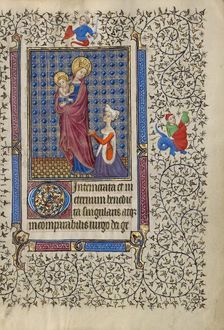 Intemerata et in
eternum benedic
ta singularis atqz
incomparabilis uirgo dei ge